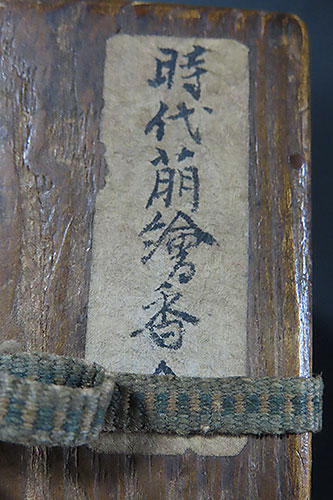 時代萠繪香